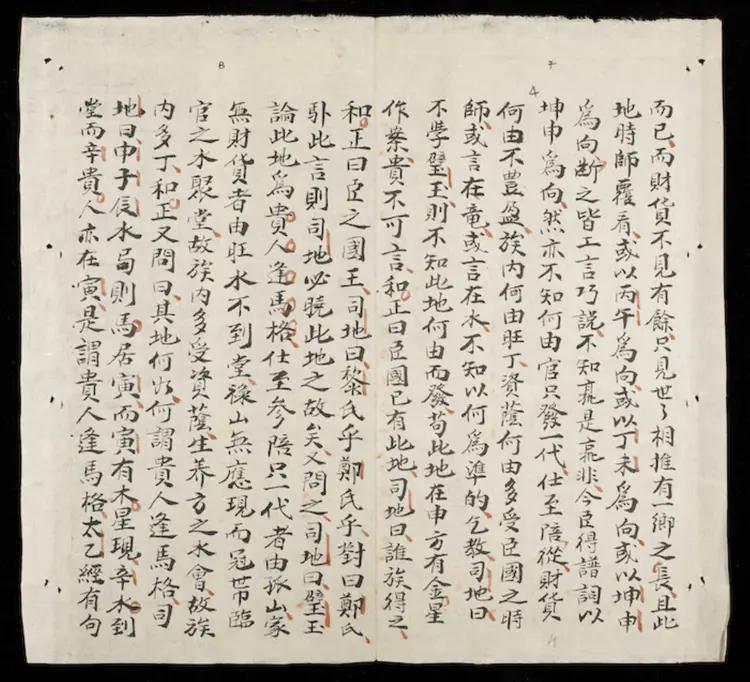 7
4
而已而財貨不見有餘只見世々相推有一鄉之長且此
地時師覆看或以丙午爲向或以丁未爲向或以坤申
爲向断之皆工言巧說不知孰是孰非今臣得譜詞以
坤申爲向然亦不知何由官只發一代仕至陪從財貨
何由不豊盈族內何由旺丁資蔭何由多受臣國之時
師或言在竜或言在水不知以何爲準的乞教司地曰
不學璧玉則不知此地何由而發苟此地在申方有金星
作案貴不可言和正曰臣國已有此地司地曰誰族得之
8
和正曰臣之國王司地曰黎氏乎鄭氏乎對曰鄭氏
卧此言則司地必曉此地之故矣又問之司地曰璧玉
論此地爲貴人逢馬格仕至參陪只一代者由孤山家
無財貨者由旺水不到堂祿山無應現而冠帶臨
官之水聚堂故族內多受資蔭生養方之水會故族
內多丁和正又問曰其地何以何謂貴人逢馬格司
地曰申子辰水局則馬居寅而寅有木星現辛水到
堂而辛貴人亦在寅是謂貴人逢馬格太乙經有句